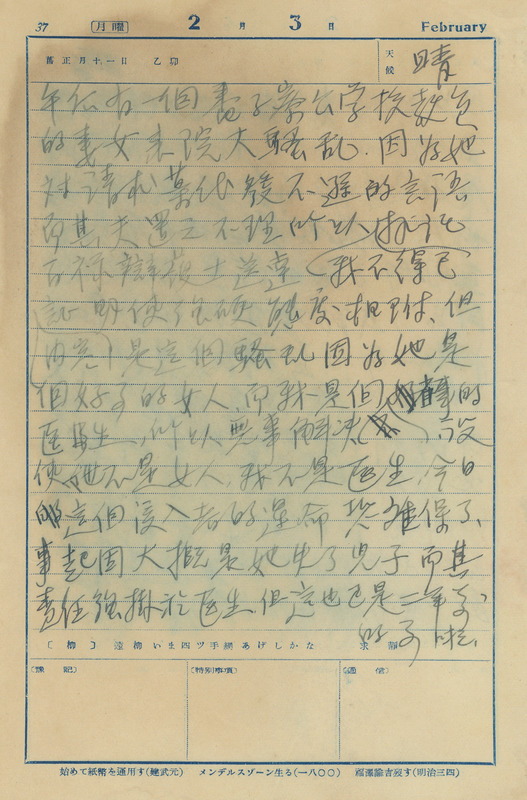 37 月曜 2月3日 February
舊正月十一日 乙卯
天候 晴
午后有一個 公学校教員
的妻女来院大騷乱.因為她
対請求薬代發不遜的言语
而其夫置之不理所以
辯護士 (我不得已
証明使強硬態度相对、但
内 )是這個騷乱因為她是
個好子的女人而我不是個 的
医生.所以無事 決 設
使她不是女人,我不是医生,今日
這個侵入者的運命 難保了、
事起因大概是她失了児子而其
責任強掛於医生.但這也已是二年多
的了啦.
〔柳〕 遠柳いま四ツ手網あげしかな 求靜
〔豫記〕
〔特別事項〕
〔通信〕
始めて紙幣を通用す(建武元) メンデルスゾーン生る(一八〇〇) 福澤諭吉歿す(明治三四)